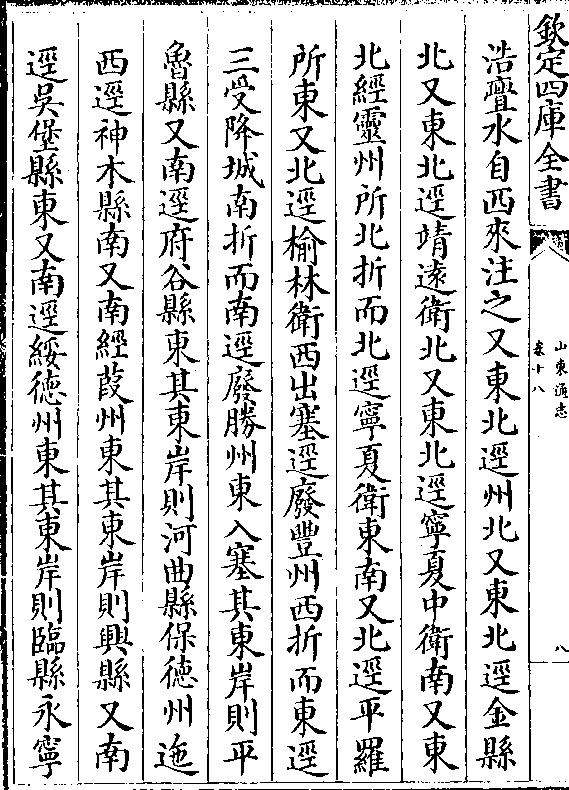 欽定四庫全書
山東通志
卷十八
八
浩亹水自西來注之又東北逕州北又東北逕金縣
北又東北逕靖遠衛北又東北逕寧夏中衛南又東
北經靈州所北折而北逕寧夏衛東南又北逕平羅
所東又北逕榆林衛西出塞逕廢豐州西折而東逕
三受降城南折而南逕廢勝州東入塞其東岸則平
魯縣又南逕府谷縣東其東岸則河曲縣保德州迤
西逕神木縣南又南經葭州東其東岸則興縣又南
逕吳堡縣東又南逕綏德州東其東岸則臨縣永寧